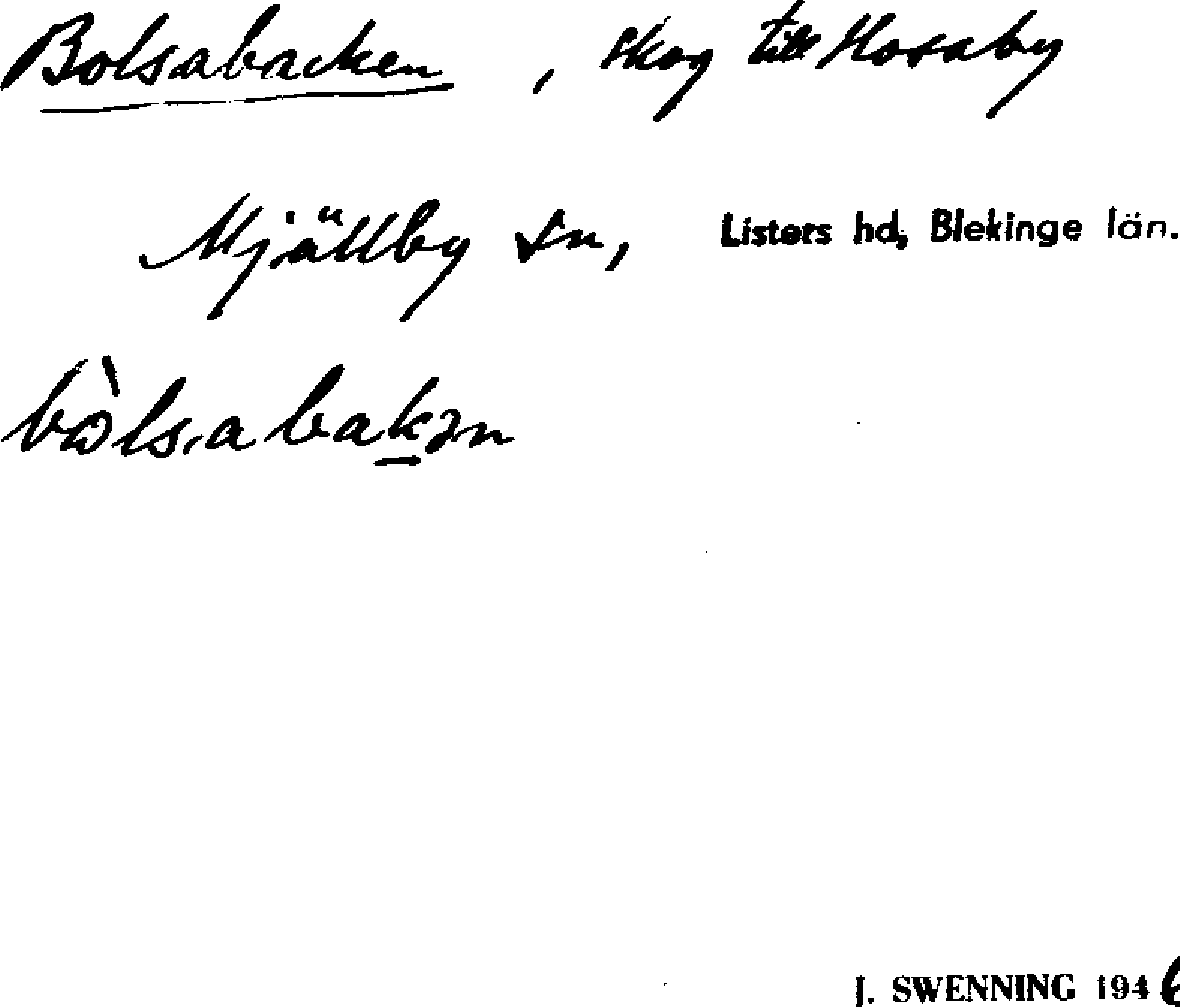 Bolsabacken, skog till Hosaby
Mjällby sn, Listers hd, Blekinge län.
bòlsabakən
J. SWENNING 1946